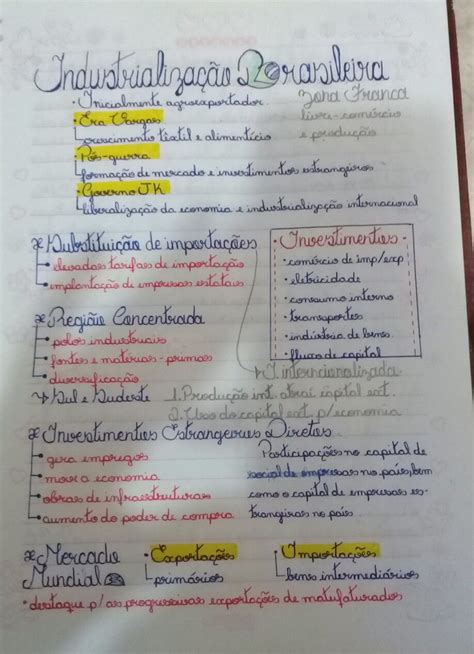 Industrialização Brasileira
• Inicialmente agroexportador.
Zona Franca
• Era Vargas
livre-comércio
↳ crescimento têxtil e alimentício
e produção
• Pós-guerra
↳ formação de mercado e investimentos estrangeiros
• Governo JK
↳ liberalização da economia e industrialização internacional
* Substituição de importações
• elevadas tarifas de importação
• implantação de empresas estatais
• Investimentos •
• comércio de imp/exp
• eletricidade
• consumo interno
• transportes
• indústria de bens
• fluxo de capital
* Região Concentrada
• polos industriais
• fontes e matérias-primas
• diversificação
→ Sul e Sudeste
→ I. internacionalizada
1. Produção int. atrai capital ext.
2. Uso do capital ext. p/economia
* Investimentos Estrangeiros Diretos
• gera empregos
• move a economia
• obras de infraestruturas
• aumento do poder de compra
Participações no capital de
social de empresas no país, bem
como o capital de empresas es-
trangeiras no país.
* Mercado
Mundial
• Exportações
↳ primários
• Importações
↳ bens intermediários
• destaque p/as progressivas exportações de matufaturados